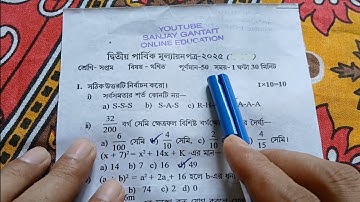 YOUTUBE
SANJAY GANTAIT
ONLINE EDUCATION
দ্বিতীয় পার্বিক মূল্যায়নপত্র-২০২৫ (
শ্রেণি- সপ্তম বিষয় - গণিত পূর্ণমান-50 সময়-1 ঘন্টা 30 মিনিট
1. সঠিক উত্তরটি নির্বাচন করো। 1×10=10
i) সর্বসমতার শর্ত কোনটি নয়-
a) S-S-S b) S-A-S c) R-H- A-A-A
ii) 32/200 বর্গ সেমি ক্ষেত্রফল বিশিষ্ট দৈর্ঘ্য-
a) 6/100 সেমি 4/10 সেমি, c) 2/10 4/15 সেমি।
(x + 7)² = x² + 14x + K -এর মান-
a) 14 b) 7 c) 16 49
² = a² + 2a + 16 হলে b-এর
b) 74 c) 2 d) 0